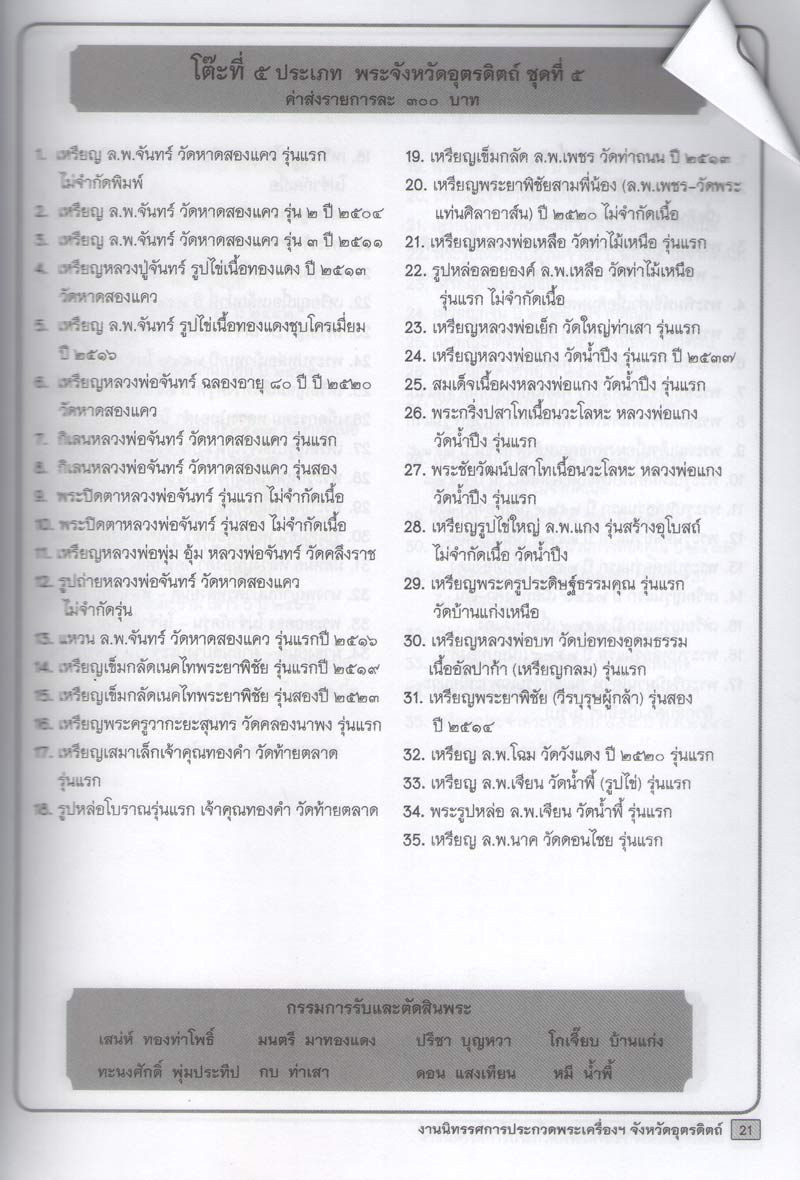 โต๊ะที่ ๕ ประเภท พระจังหวัดอุตรดิตถ์ ชุดที่ ๕
ค่าส่งรายการละ ๓๐๐ บาท
1. เหรียญ ล.พ.จันทร์ วัดหาดสองแคว รุ่นแรก
ไม่จำกัดพิมพ์
2. เหรียญ ล.พ.จันทร์ วัดหาดสองแคว รุ่น ๒ ปี ๒๕๐๔
3. เหรียญ ล.พ.จันทร์ วัดหาดสองแคว รุ่น ๓ ปี ๒๕๑๑
4. เหรียญหลวงปู่จันทร์ รูปไข่เนื้อทองแดง ปี ๒๕๑๓
วัดหาดสองแคว
5. เหรียญ ล.พ.จันทร์ รูปไข่เนื้อทองแดงชุบโครเมี่ยม
ปี ๒๕๑๖
6. เหรียญหลวงพ่อจันทร์ ฉลองอายุ ๘๐ ปี ปี ๒๕๒๐
วัดหาดสองแคว
7. กิเลนหลวงพ่อจันทร์ วัดหาดสองแคว รุ่นแรก
8. กิเลนหลวงพ่อจันทร์ วัดหาดสองแคว รุ่นสอง
9. พระปิดตาหลวงพ่อจันทร์ รุ่นแรก ไม่จำกัดเนื้อ
10. พระปิดตาหลวงพ่อจันทร์ รุ่นสอง ไม่จำกัดเนื้อ
11. เหรียญหลวงพ่อพุ่ม อุ้ม หลวงพ่อจันทร์ วัดคลึงราช
12. รูปถ่ายหลวงพ่อจันทร์ วัดหาดสองแคว
ไม่จำกัดรุ่น
13. แหวน ล.พ.จันทร์ วัดหาดสองแคว รุ่นแรกปี ๒๕๑๖
14. เหรียญเข็มกลัดเนคไทพระยาพิชัย รุ่นแรกปี ๒๕๑๙
15. เหรียญเข็มกลัดเนคไทพระยาพิชัย รุ่นสองปี ๒๕๒๓
16. เหรียญพระครูวากะยะสุนทร วัดคลองนาพง รุ่นแรก
17. เหรียญเสมาเล็กเจ้าคุณทองคำ วัดท้ายตลาด
รุ่นแรก
18. รูปหล่อโบราณรุ่นแรก เจ้าคุณทองคำ วัดท้ายตลาด
19. เหรียญเข็มกลัด ล.พ.เพชร วัดท่าถนน ปี ๒๕๑๓
20. เหรียญพระยาพิชัยสามพี่น้อง (ล.พ.เพชร-วัดพระ
แท่นศิลาอาส์น) ปี ๒๕๒๐ ไม่จำกัดเนื้อ
21. เหรียญหลวงพ่อเหลือ วัดท่าไม้เหนือ รุ่นแรก
22. รูปหล่อลอยองค์ ล.พ.เหลือ วัดท่าไม้เหนือ
รุ่นแรก ไม่จำกัดเนื้อ
23. เหรียญหลวงพ่อเย็ก วัดใหญ่ท่าเสา รุ่นแรก
24. เหรียญหลวงพ่อแกง วัดน้ำปึง รุ่นแรก ปี ๒๕๓๗
25. สมเด็จเนื้อผงหลวงพ่อแกง วัดน้ำปึง รุ่นแรก
26. พระกริ่งปสาโทเนื้อนวะโลหะ หลวงพ่อแกง
วัดน้ำปึง รุ่นแรก
27. พระชัยวัฒน์ปสาโทเนื้อนวะโลหะ หลวงพ่อแกง
วัดน้ำปึง รุ่นแรก
28. เหรียญรูปไข่ใหญ่ ล.พ.แกง รุ่นสร้างอุโบสถ์
ไม่จำกัดเนื้อ วัดน้ำปึง
29. เหรียญพระครูประดิษฐ์ธรรมคุณ รุ่นแรก
วัดบ้านแก่งเหนือ
30. เหรียญหลวงพ่อบท วัดบ่อทองอุดมธรรม
เนื้ออัลปาก้า (เหรียญกลม) รุ่นแรก
31. เหรียญพระยาพิชัย (วีรบุรุษผู้กล้า) รุ่นสอง
ปี ๒๕๑๔
32. เหรียญ ล.พ.โฉม วัดวังแดง ปี ๒๕๒๐ รุ่นแรก
33. เหรียญ ล.พ.เจียน วัดน้ำพี้ (รูปไข่) รุ่นแรก
34. พระรูปหล่อ ล.พ.เจียน วัดน้ำพี้ รุ่นแรก
35. เหรียญ ล.พ.นาค วัดดอนไชย รุ่นแรก
กรรมการรับและตัดสินพระ
เสน่ห์ ทองท่าโพธิ์ มนตรี มาทองแดง ปรีชา บุญหวา โกเจี๊ยบ บ้านแก่ง
ทะนงศักดิ์ พุ่มประทีป กบ ท่าเสา ดอน แสงเทียน หมี น้ำพี้
งานนิทรรศการประกวดพระเครื่องฯ จังหวัดอุตรดิตถ์ 21